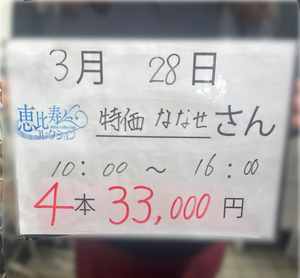 3月 28日
恵比寿
コレクション
特価 ななせさん
10:00 ～ 16:00
4本 33,000円